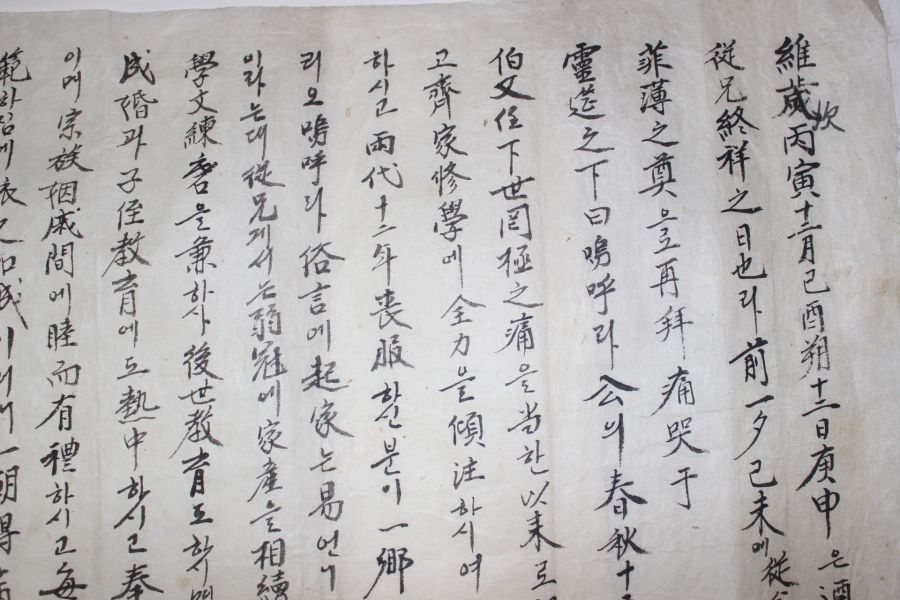 維歲次丙寅十二月己酉朔十二日庚申은
從兄終祥之日也라前一夕己未에從
菲薄之奠으로再拜痛哭于
靈筵之下曰嗚呼라公의春秋十
伯父住下世罔極之痛을當한以來로
고齊家修學에全力을傾注하시여
하시고兩代十二年喪服하신분이一鄉
리오嗚呼라俗言에起家는易언니
이라는대從兄게서는弱冠에家産을相續
學文練磨을兼하사後世教育도하
成婚과子侄教育에도熱中하시고奉
이며宗族姻戚間에睦而有禮하시고每
範하